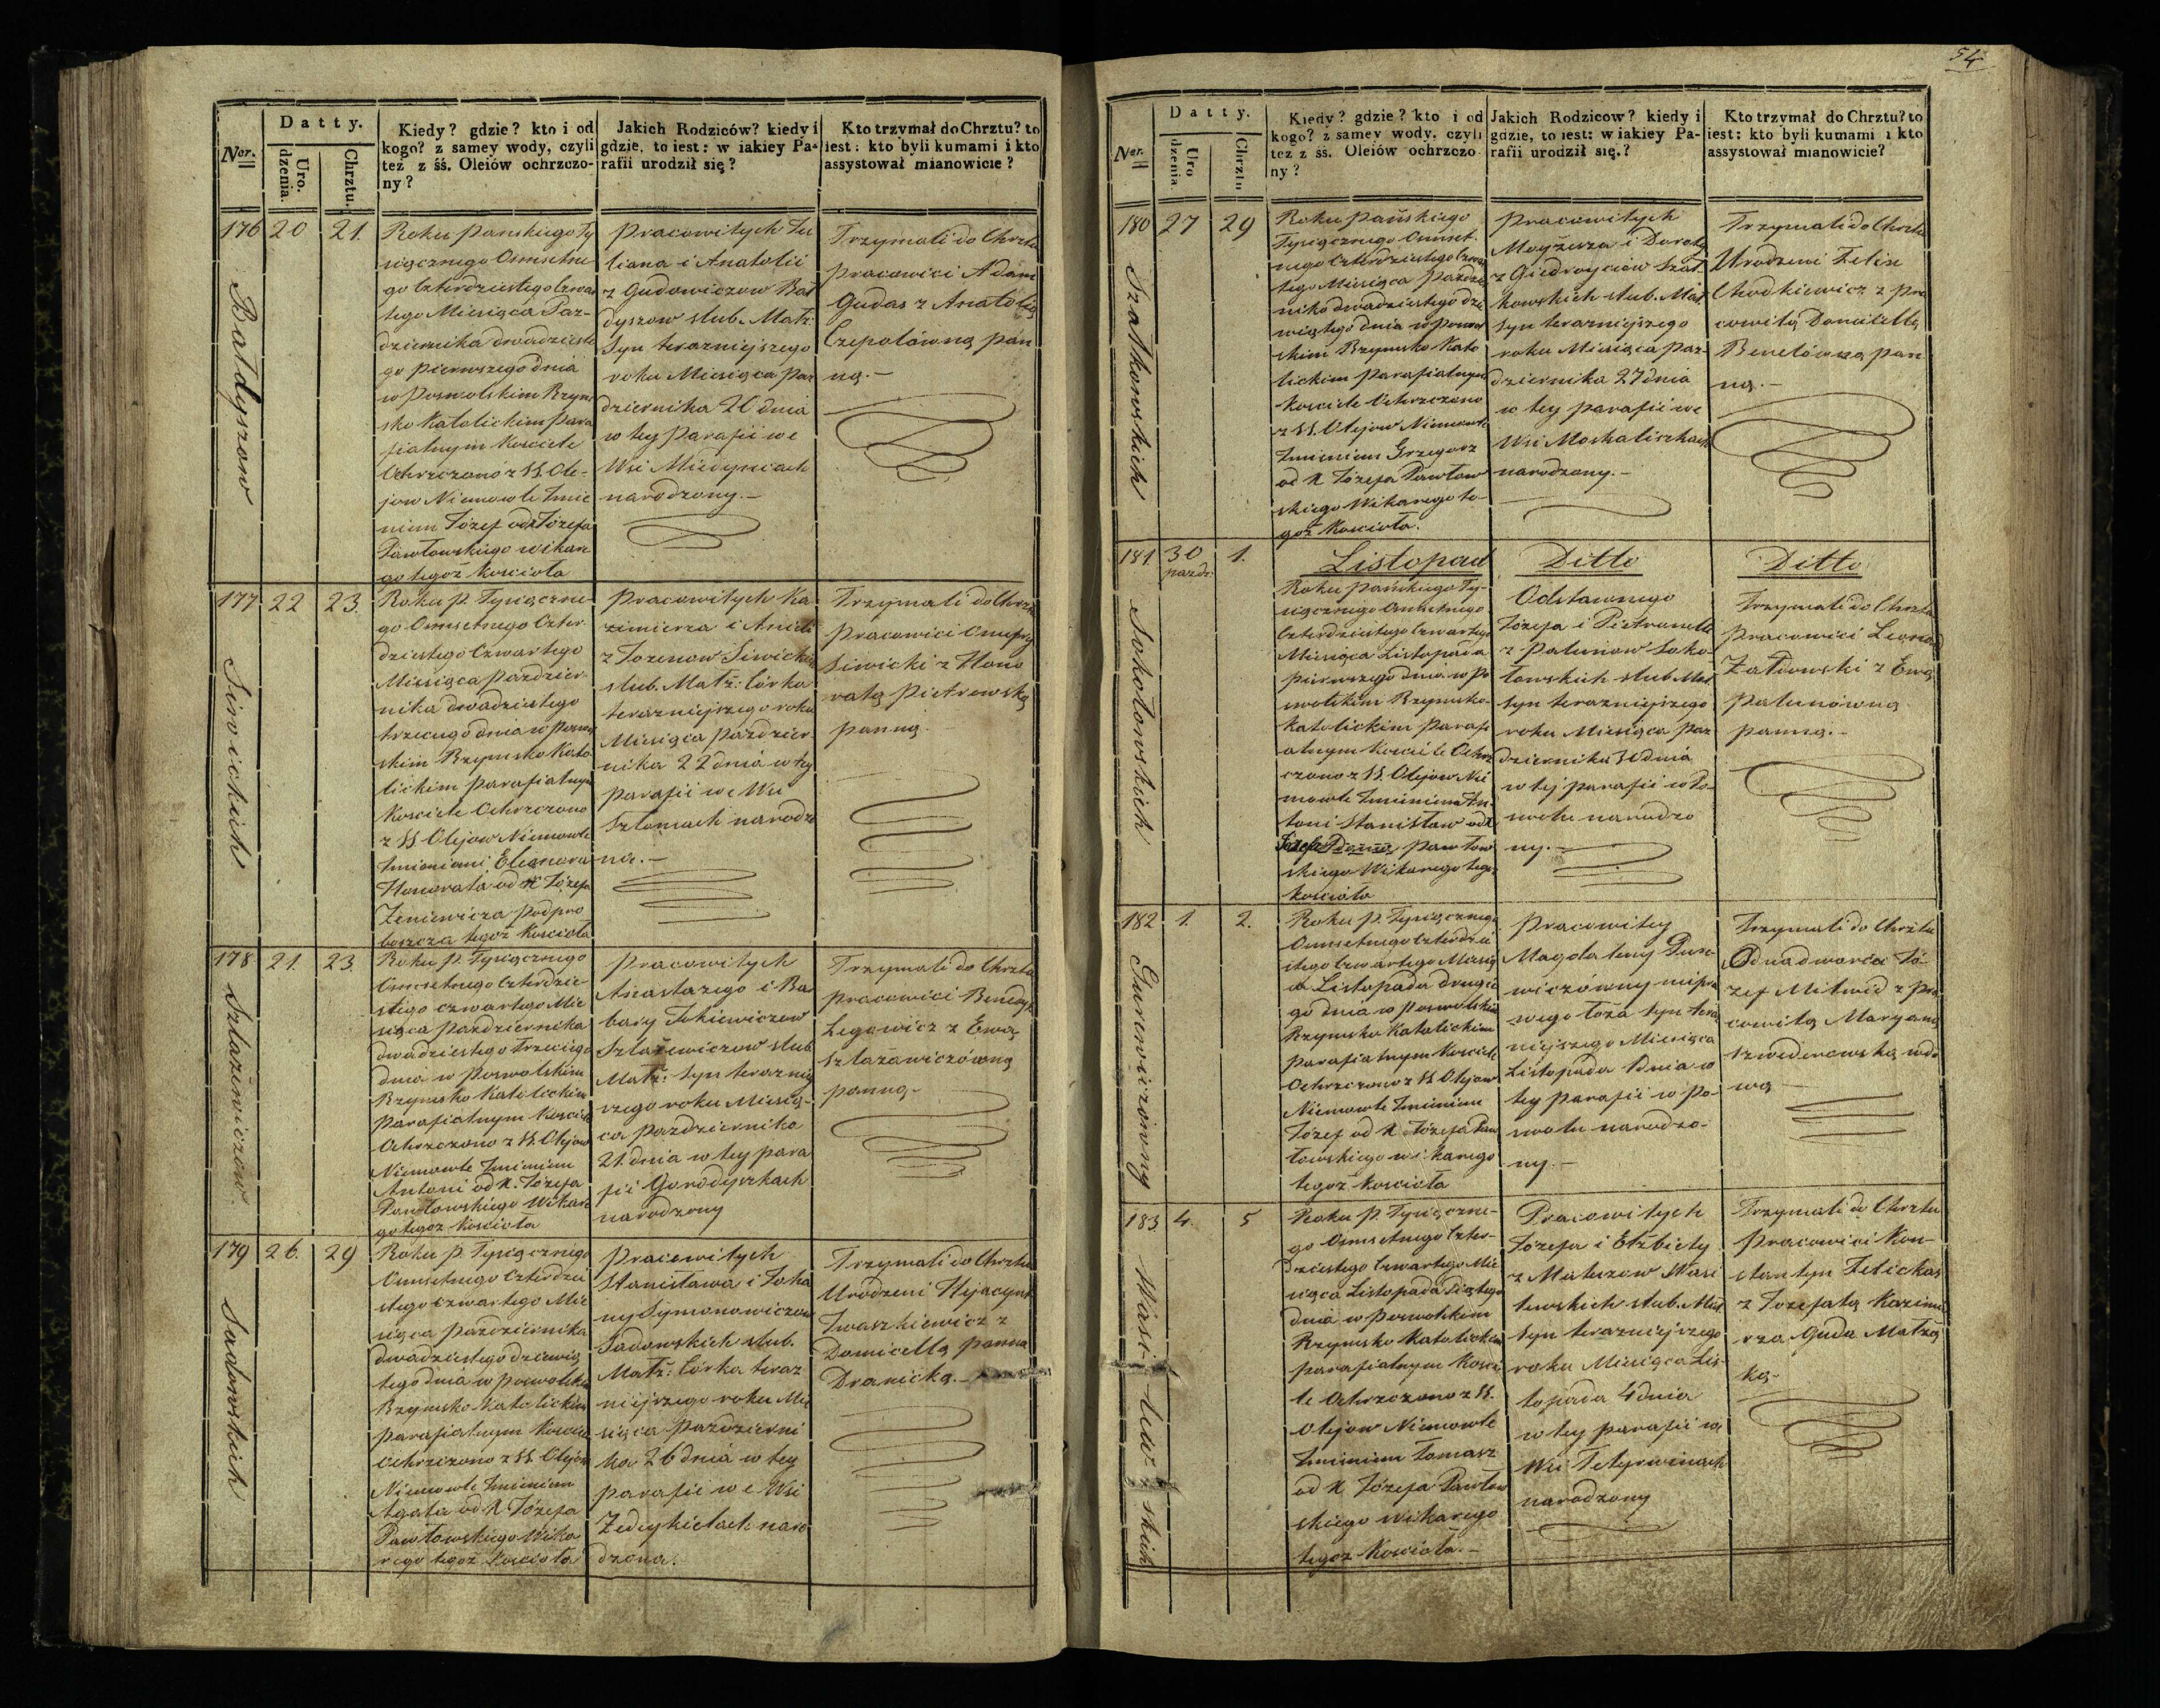 54
Datty.
Kiedy? gdzie? kto i od
kogo? z samey wody, czyli
też z śś. Oleiów ochrzczo-
ny?
Jakich Rodziców? kiedy i
gdzie, to iest: w iakiey Pa-
rafii urodził się?
Kto trzymał do Chrztu? to
iest: kto byli kumami i kto
assystował mianowicie?
Ner.
Uro.
dzenia.
Chrztu.
176
20
21.
Baldyszow
Roku Panskiego Ty
siącznego Osmsetne
go Czterdziestego Czwar
tego Miesiąca Paz-
dziernika dwadzieste
go pierwszego dnia
w Poswolskim Rzym
sko Katolickim para
fialnym Kosciele
Ochrzczono z SS. Ole-
jow Niemowle Imie
niem Józef od X Józefa
Pawłowskiego wikare
go tegoż Kościoła
Pracowitych Ju
liana i Anatolii
z Gudowiczow Bal
dyszow slub. Małż:
Syn terazniejszego
roku Miesiąca paz
dziernika 20 dnia
w tey Parafii we
Wsi
narodzony.-
Trzymali do Chrztu
pracowici Adam
Gudas z Anatolią
Czepolówną pan
ną.-
177
22
23.
Siwickich
Roku P. Tysiączne
go Osmsetnego Czter
dziestego Czwartego
Miesiąca pazdzier
nika dwadziestego
trzeciego dnia w poswol
skim Rzymsko Kato
lickim parafialnym
Kosciele Ochrzczono
z SS Olejow Niemowle
Imionami Eleonora
Honorata od X Józefa
Zeniewicza podpro
boszcza tegoż Kościoła
Pracowitych Ka
zimierza i Anieli
z Siwickich
slub. Małż: Córka
terazniejszego roku
Miesiąca pazdzier
nika 22 dnia w tey
parafii we Wsi
narodzo
na.-
Trzymali do Chrztu
pracowici Onufry
Siwicki z Hono
ratą Pietrowską
panną
178
21.
23
Szlażewiczow.
Roku P. Tysiącznego
Osmsetnego Czterdzie
stego czwartego Mie
siąca pazdziernika
dwadziestego trzeciego
dnia w Poswolskim
Rzymsko Katolickim
parafialnym Kosciele
Ochrzczono z SS. Olejow
Niemowle Imieniem
Antoni od X. Józefa
Pawłowskiego Wikare
go tegoz Kościoła
Pracowitych
Anastazego i Bar
bary
Szlażewiczow slub
Małż: syn terazniej
szego roku Miesią-
ca pazdziernika
21. dnia w tey para
fii Gorodyszkach
narodzony
Trzymali do Chrztu
pracowici Benedykt
Legowicz z Ewą
Szlażawiczówną
panną-
179
26.
29
Sadowskich
Roku P. Tysiącznego
Osmsetnego Czterdzie
stego czwartego Mie
siąca pazdziernika
dwadziestego dziewią
tego dnia w poswolskim
Rzymsko Katolickim
parafialnym Kosciele
ochrzczono z SS. Olejow
Niemowle Imieniem
Agata od X Józefa
Pawłowskiego Wika
rego tegoż Kościoła
Pracowitych
Stanisława i Joha
ny Symonowiczow
Sadowskich slub.
Małż: Córka teraz
niejszego roku Mie
siąca Pazdzierni
ka 26 dnia w tey
parafii we Wsi
naro
dzona.
Trzymali do Chrztu
Urodzeni Hyacynt
Iwaszkiewicz z
Domicellą panną
Dranicką.-
Datty.
Kiedy? gdzie? kto i od
kogo? z samey wody, czyli
tez z śś. Oleiów ochrzczo
ny?
Jakich Rodzicow? kiedy i
gdzie, to iest: w iakiey Pa-
rafii urodził się.?
Kto trzymał do Chrztu? to
iest: kto byli kumami i kto
assystował mianowicie?
Ner.
Uro
dzenia
Chrztu
180
27
29
Szatkowskich
Roku Pańskiego
Tysiącznego Osmset
nego Czterdziestego Czwar
tego Miesiąca Pazdzier
nika dwadziestego dzie
wiątego dnia w poswol
skim Rzymsko Kato
lickim parafialnym
Kosciele Ochrzczono
z SS. Olejow Niemowle
Imieniem Grzegorz
od X Józefa Pawłow
skiego Wikarego te-
goż Kościoła.
Pracowitych
Moyżesza i Doroty
z Giedroyciów Szat
kowskich slub. Małż
syn terazniejszego
roku Miesiąca paz-
dziernika 27 dnia
w tey parafii we
Wsi Moskaliszkach
narodzony.-
Trzymali do Chrztu
Urodzeni Felix
Chodkiewicz z pra
cowitą Domicellą
Benetówną pan
ną.-
181
30
pazdz:
1.
Sokołowskich
Listopad
Ditto
Ditto
Roku Pańskiego Ty-
siącznego Osmsetnego
Czterdziestego Czwartego
Miesiąca Listopada
pierwszego dnia w po
swolskim Rzymsko
katolickim parafi
alnym Kosciele Ochrz
czono z SS. Olejow Nie
mowle Imieniem An-
toni Stanisław od X
Józefa Pawłow
skiego Wikarego tegoz
Kościoła
Odstawnego
Józefa i Pietronelli
z Palunow Soko
łowskich slub Małż
syn terazniejszego
roku Miesiąca paz
dziernika 30 dnia
w tej parafii w Po-
swolu narodzo
ny.-
Trzymali do Chrztu
pracowici Leonard
Żałdowski z Ewą
Palunówną
panną.-
182
1.
2.
Gurewiczówny
Roku P. Tysiącznego
Osmsetnego Czterdzie
stego Czwartego Miesią
ca Listopada drugie
go dnia w poswolskim
Rzymsko Katolickim
parafialnym Kosciele
Ochrzczono z SS Olejow
Niemowle Imieniem
Józef od X Józefa Paw
łowskiego wikarego
tegoz Kościoła
Pracowitey
Magdaleny Gure
wiczówny niepra
wego Łoża syn tera
niejszego Miesiąca
Listopada 1 dnia w
tey parafii w Po-
swolu narodzo-
ny.-
Trzymali do Chrztu
Odnadworca Jó-
zef Mitwid z pra
cowitą Maryaną
Szwederowską wdo
wą-
183.
4.
5
Wasi-lew-skich
Roku P. Tysiączne-
go Osmsetnego Czter-
dziestego Czwartego Mie
siąca Listopada Piątego
dnia w poswolskim
Rzymsko Katolickim
parafialnym Koście
le Ochrzczono z SS.
Olejow Niemowle
Imieniem Tomasz
od X Józefa Pawłow
skiego Wikarego
tegoz Kościoła.-
Pracowitych
Józefa i Elżbiety
z Matuzow Wasi
lewskich slub. Małż
syn terazniejszego
roku Miesiąca Lis-
topada 4 dnia
w tey parafii we
Wsi Tetyrwinach
narodzony
Trzymali do Chrztu
pracowici Kon-
stantyn Zelickas
z Jozefatą Kazimie
rza Gudu Małżą
ką-